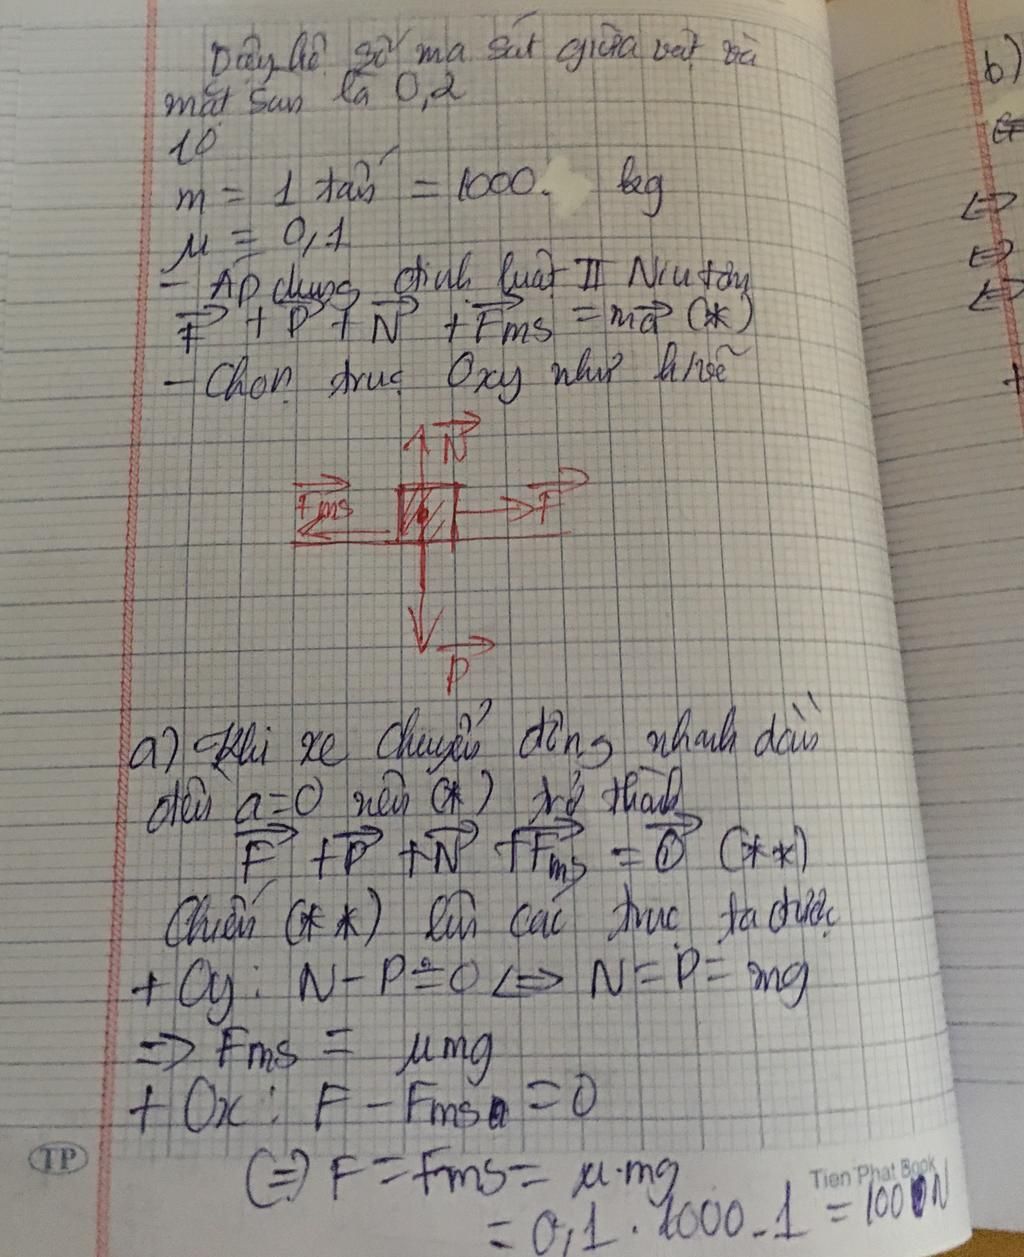 Vậy hệ số ma sát giữa vật và
mặt sàn là 0,2
10
m = 1 tấn = 1000. kg
μ = 0,1
- Áp dụng định luật II Niu tơn
F + P + N + Fms = ma (*)
- Chọn trục Oxy như h/vẽ
N
Fms
F
P
a) Khi xe chuyển động nhanh dần
đều a=0 nên (*) trở thành
F + P + N + Fms = 0 (**)
Chiếu (**) lên các trục ta được
+ Oy: N - P = 0 <=> N = P = mg
=> Fms = μmg
+ Ox: F - Fms = 0
(=) F = Fms = μ.mg
= 0,1 . 1000 . 1 = 1000N
TP
Tien Phat Book
b)
<=
<=>
=>
<=>
+